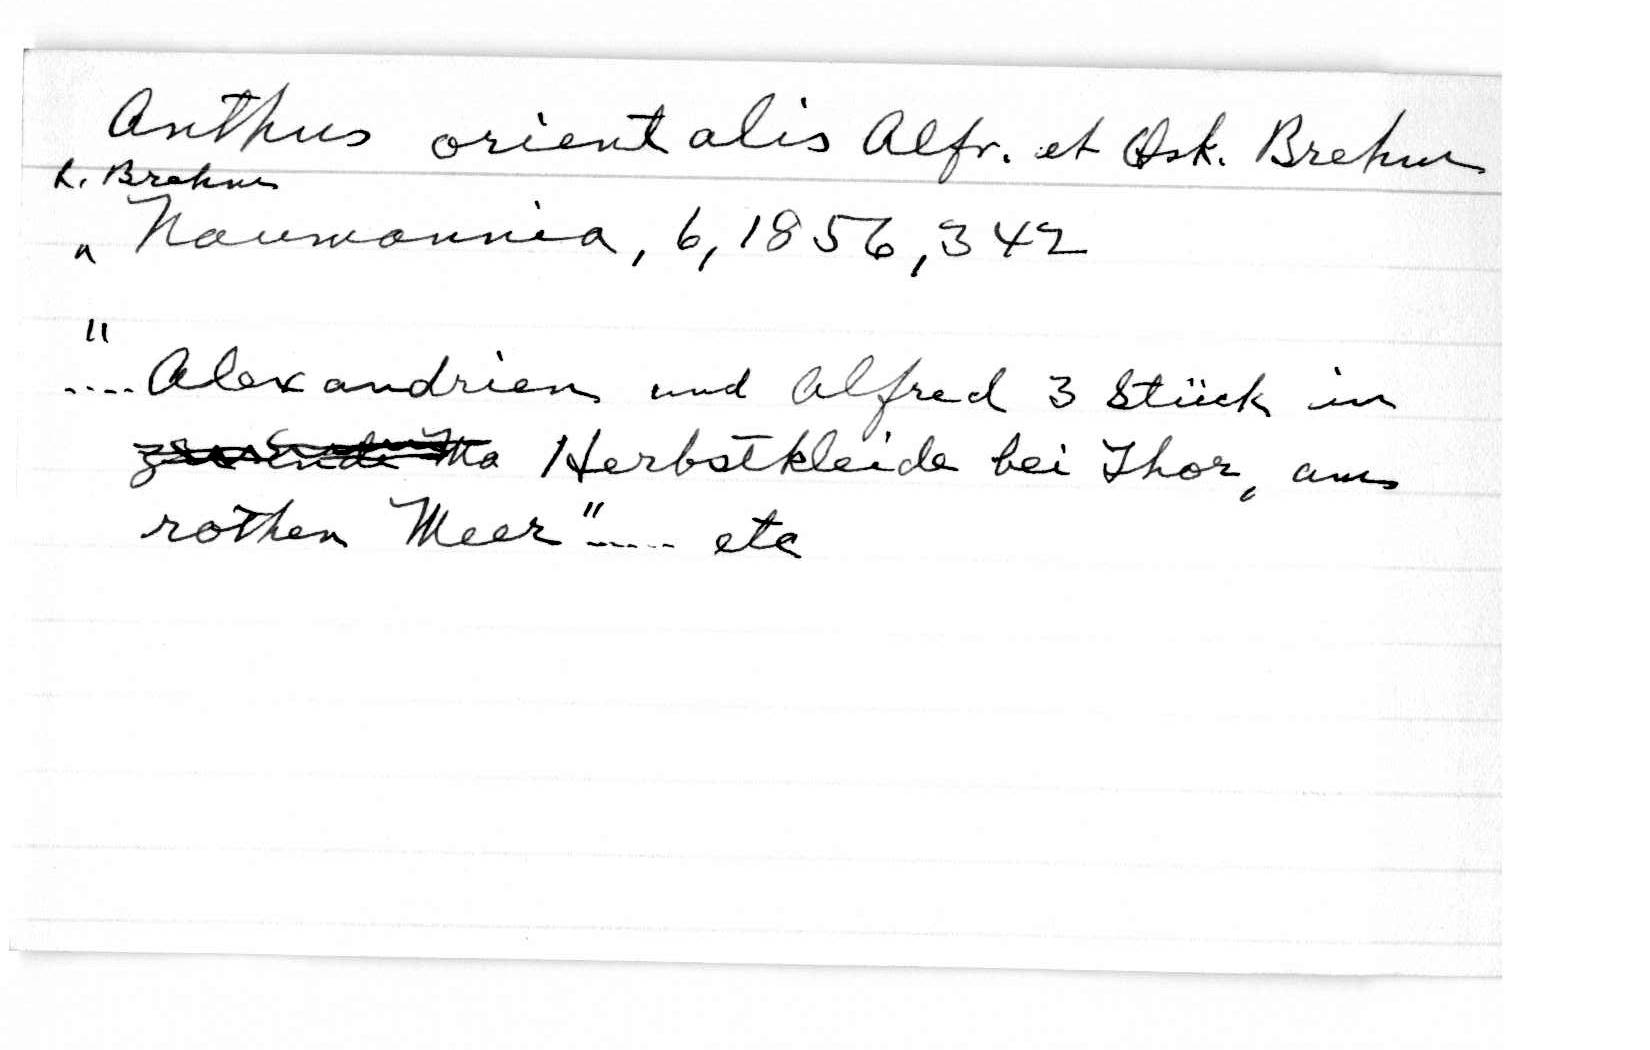 Anthus orientalis Alfr. et Osk. Brehm
L. Brehm
^ Naumannia, 6, 1856, 342
"
.... Alexandrien und Alfred 3 Stück in
Herbstkleide bei Thor, am
rothen Meer" ..... etc